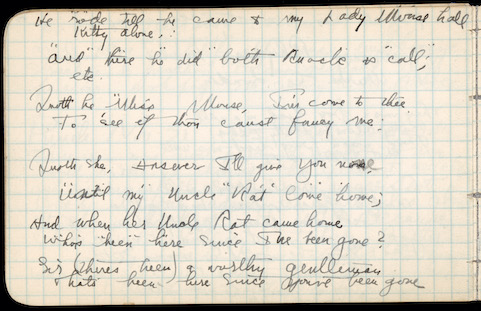 He rode till he came to my Lady Mouse hall
Kitty alone,
"And" there he did both knock & "call",
etc.
Quoth he "Miss Mouse, I'm come to thee
To see if thou canst fancy me:
Quoth she, answer I'll give you none,
Until my Uncle "Rat" come home;
And when her Uncle Rat came home
Who's been here since I've been gone?
Sir (there's been) a worthy gentleman
That's been here since you've been gone